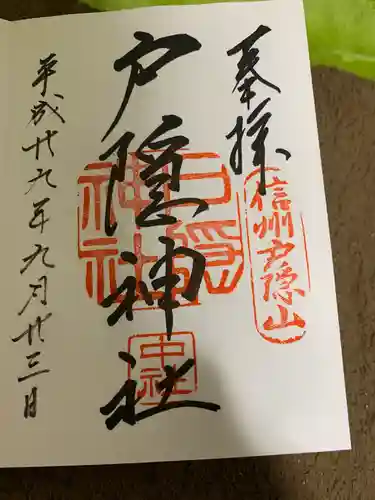 奉拝
信州戸隠山
戸隠神社
戸隠神社
中社
平成廿九年九月廿三日